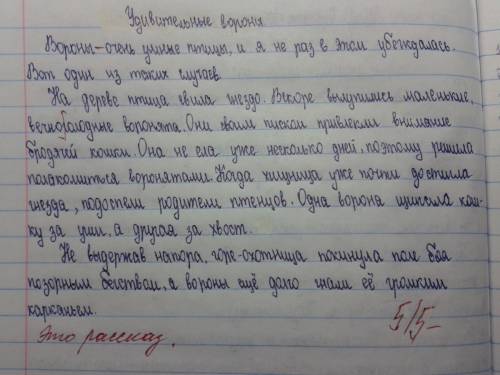 Удивительные вороны
Вороны – очень умные птицы, и я не раз в этом убеждалась.
Вот один из таких случаев.
На дереве птица свила гнездо. Вскоре вылупились маленькие,
вечноголодные воронята. Они своим писком привлекли внимание
бродячей кошки. Она не ела уже несколько дней, поэтому решила
полакомиться воронятами. Когда хищница уже почти достигла
гнезда, подоспели родители птенцов. Одна ворона щипала кош-
ку за уши, а другая за хвост.
Не выдержав напора, горе-охотница покинула поле боя
позорным бегством, а вороны ещё долго гнали её громким
карканьем.
5/5-
Это рассказ.